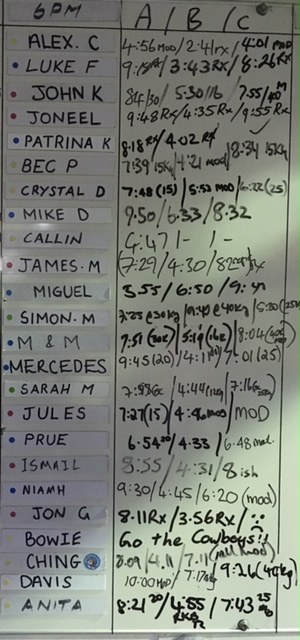 6PM A / B / C
ALEX. C 4:56 MOD / 2:41rx / 4:01 MOD
LUKE F / 3:43 Rx / 8:26 Rx
JOHN K 84/30 / 5:30/16 / 7:55
JONEEL 9:48 Rx / 4:35 Rx / 9:55 Rx
PATRINA K 8:18 Rx / 4:02 Rx / 8:34 15kg
BEC P 7:39 15kg / 4:21 mod
CRYSTAL D 7:48 (15) / 5:52 MOD / 6:22 (25)
MIKE D 9.50 / 6.33 / 8.32
CALLIN 6:47 / - / -
JAMES. M (7:29 / 4:30 /
MIGUEL 3.55 / 6:50 /
SIMON. M
M & M 7:51 (20k) / 5:19 (16k) / 8:04
MERCEDES 9:45 (20) / / 7:01 (25)
SARAH M / 4:44 / 7:16
JULES 7:27 (15) / 4:46 mod / MOD
PRUE 6.54 20 / 4.33 / 6.48 mod.
ISMAIL 8:55 / 4:31 / 8 ish
NIAMH 9:30 / 4:45 / 6:20 (mod)
JON G 8.11 Rx / 3.56 Rx /
BOWIE Go the Cowboys!!
CHING 8.09 / 4.11 / 7.11 (all mod)
DAVIS 10:00 MOD / / 9:26 (40kg)
ANITA 8:21 20 / 4:55 / 7:43 25